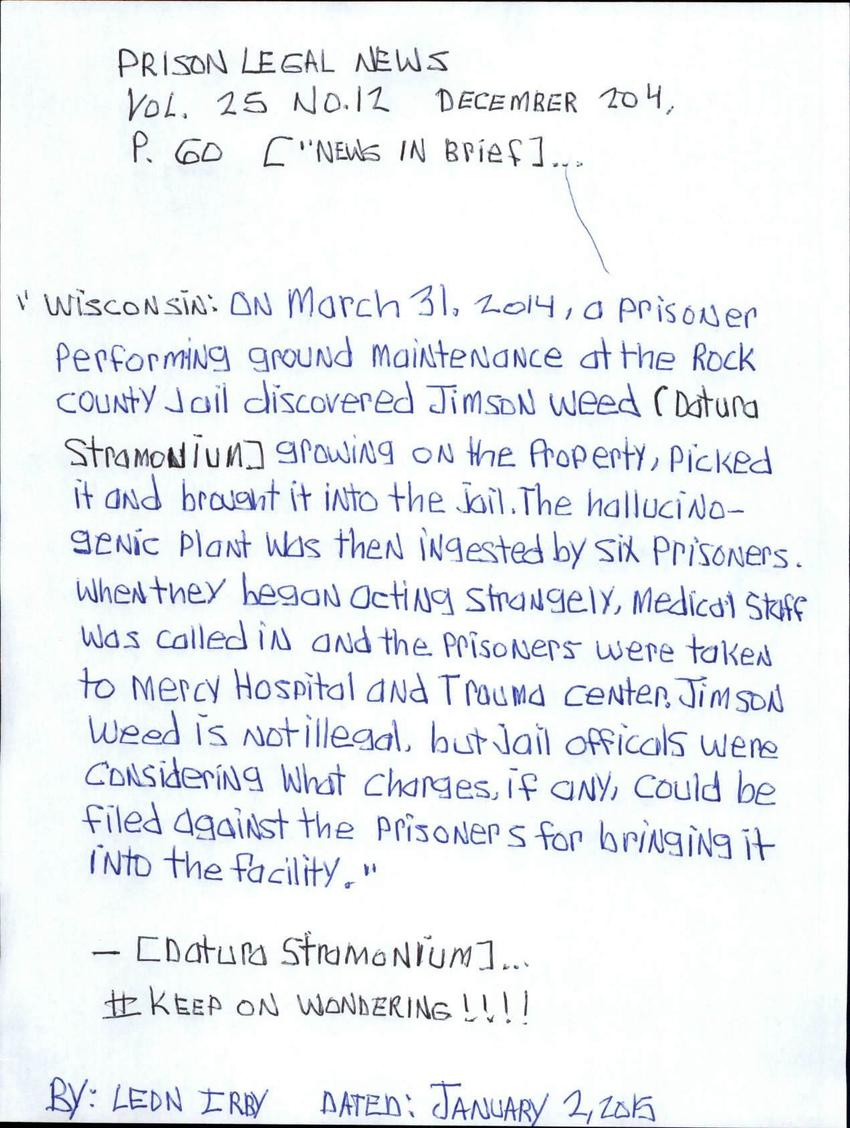 PRISON LEGAL NEWS
VOL. 25 NO.12 DECEMBER 204,
P. 60 ["NEWS IN Brief]...
"Wisconsin: ON March 31, 2014, a prisoner
performing ground maintenance at the Rock
county Jail discovered Jimson weed (Datura
Stramonium] growing on the property, picked
it and brought it into the jail. The hallucino-
genic plant was then ingested by six prisoners.
When they began acting strangely, medical staff
was called in and the prisoners were taken
to Mercy Hospital and Trauma center. Jimson
weed is not illegal, but jail officals were
considering what charges, if any, could be
filed against the prisoners for bringing it
into the facility."
— [Datura Stramonium]...
# KEEP ON WONDERING!!!!
BY: LEON IRBY DATED: JANUARY 2, 2015